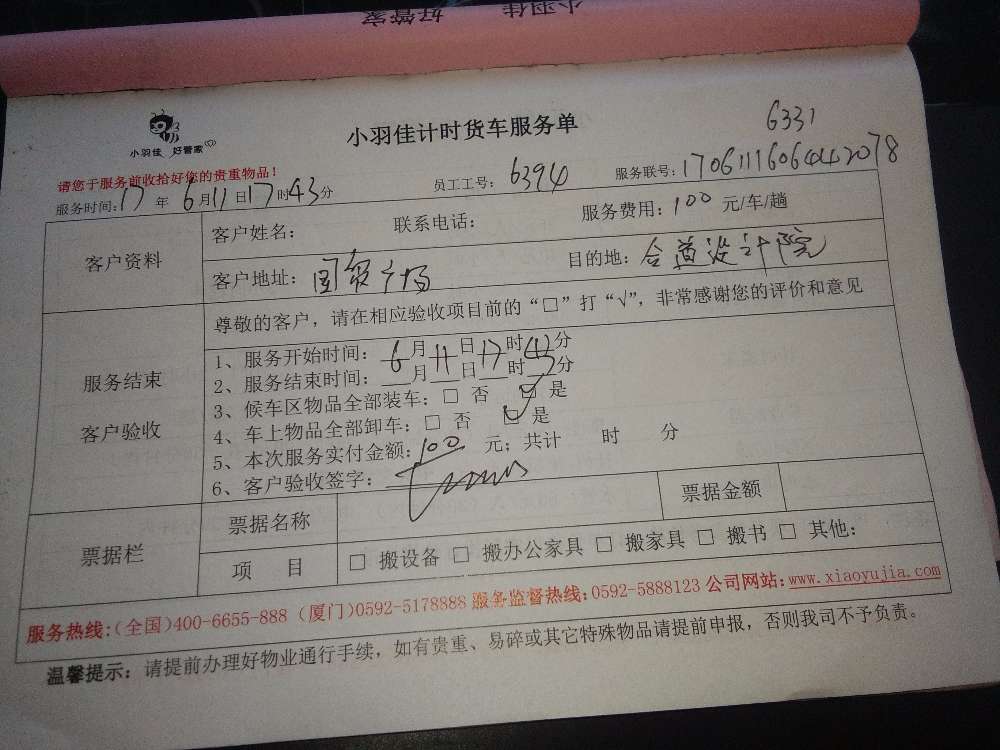 小羽佳 好管家
小羽佳 好管家
小羽佳计时货车服务单
6331
请您于服务前收拾好您的贵重物品！
服务时间：17年6月11日17时43分 员工工号：6394 服务联号：170611160644042078
客户资料
客户姓名： 联系电话： 服务费用：100元/车/趟
客户地址：国贸广场 目的地：合道设计院
服务结束
客户验收
尊敬的客户，请在相应验收项目前的“□”打“√”，非常感谢您的评价和意见
1、服务开始时间：6月11日17时43分
2、服务结束时间：___月___日___时___分
3、候车区物品全部装车：□ 否 □ 是
4、车上物品全部卸车：□ 否 □ 是
5、本次服务实付金额：100元；共计 时 分
6、客户验收签字：
票据栏
票据名称 票据金额
项 目 □ 搬设备 □ 搬办公家具 □ 搬家具 □ 搬书 □ 其他：
服务热线:(全国)400-6655-888 (厦门)0592-5178888 服务监督热线:0592-5888123 公司网站:www.xiaoyujia.com
温馨提示：请提前办理好物业通行手续，如有贵重、易碎或其它特殊物品请提前申报，否则我司不予负责。